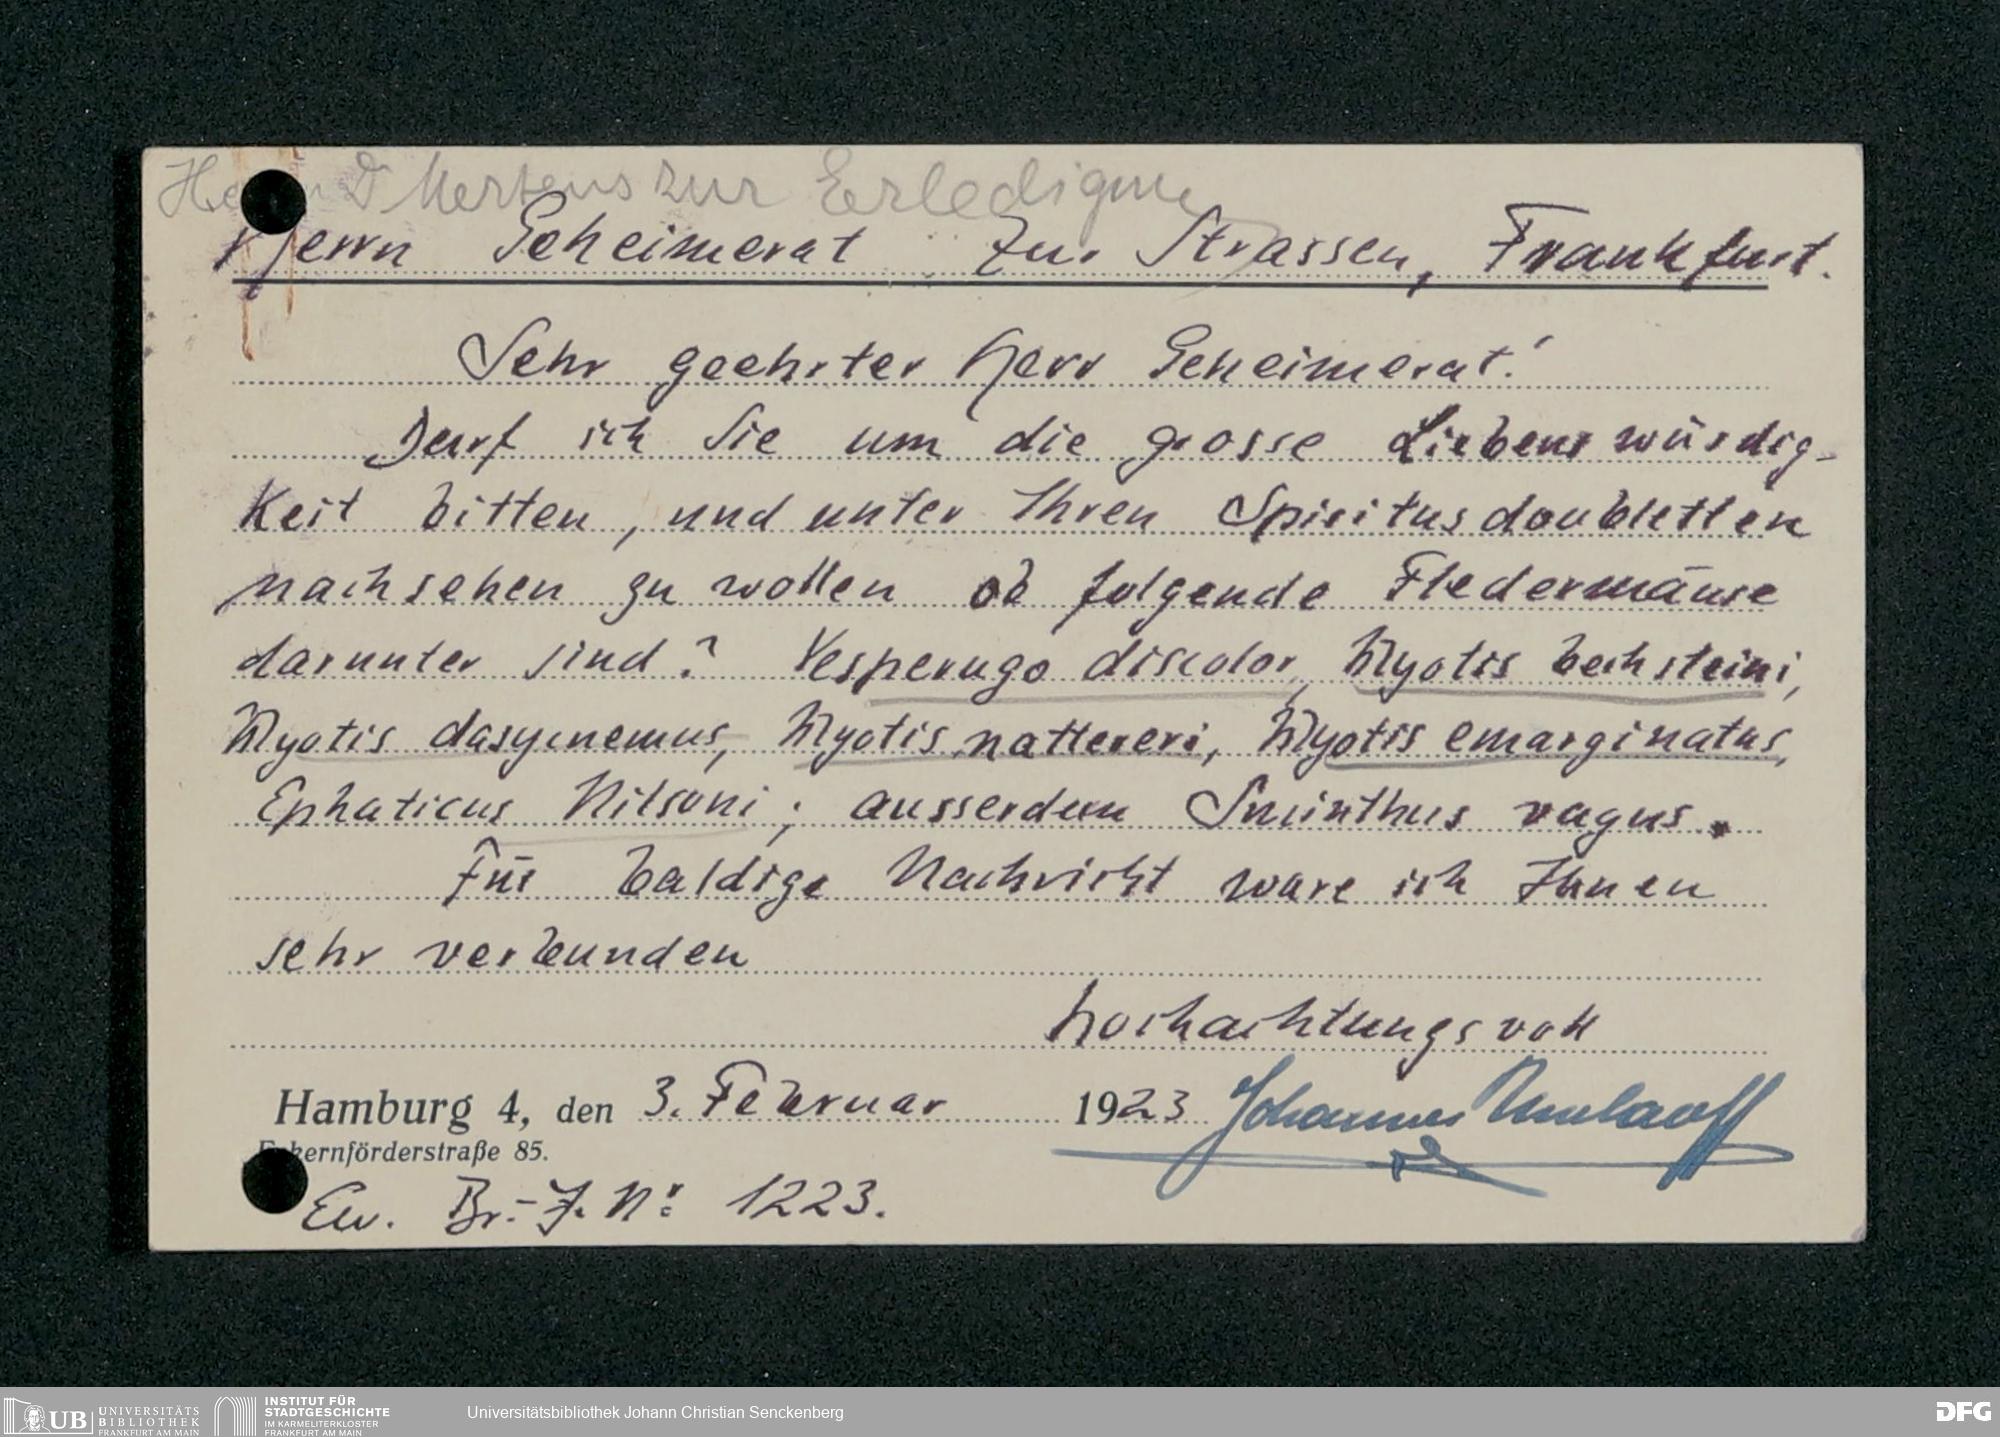 Herrn Dr Mertens zur Erledigung
Herrn Geheimerat zur Strassen, Frankfurt.
Sehr geehrter Herr Geheimerat!
Darf ich Sie um die grosse Liebenswürdig-
keit bitten, und unter Ihren Spiritusdoubletten
nachsehen zu wollen ob folgende Fledermäuse
darunter sind? Vesperugo discolor, Myotis bechsteini,
Myotis dasycnemus, Myotis nattereri, Myotis emarginatus,
Ephaticus Nilsoni; ausserdem Sminthus vagus.
Für baldige Nachricht wäre ich Ihnen
sehr verbunden
hochachtungsvoll
Hamburg 4, den 3. Februar 1923 Johannes Umlauff
Eckernförderstraße 85.
Ew. Br.-J. Nr: 1223.
UB UNIVERSITÄTS
BIBLIOTHEK
FRANKFURT AM MAIN
INSTITUT FÜR
STADTGESCHICHTE
IM KARMELITERKLOSTER
FRANKFURT AM MAIN
Universitätsbibliothek Johann Christian Senckenberg
DFG